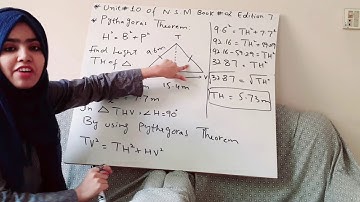 * Unit # 10 of N.S.M Book # 02 Edition 7
* Pythagoras Theorem
H² = B² + P²
T
Find height
TH of Δ
V
15.4m
7.7m
In Δ THV, ∠H = 90°
By using Pythagoras Theorem
TV² = TH² + HV²
92.16 - 59.29 = TH²
32.87 = TH²
√32.87 = √TH²
TH = 5.73m